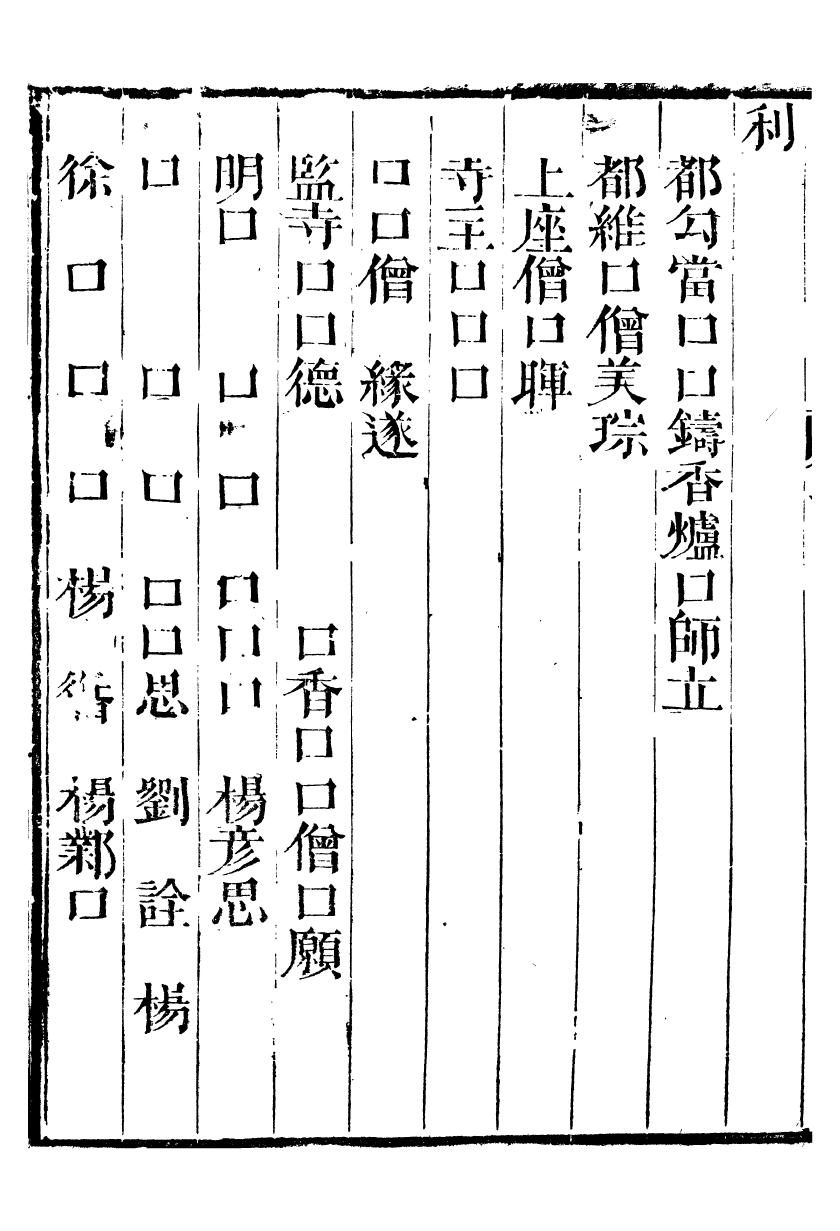 利
都勾當口口鑄香爐口師立
都維口僧美琮
上座僧口暉
寺主口口口
口口僧　緣遂
監寺口口德　口香口口僧口願
明口　口　口　口口口　楊彦思
口　口　口　口口思　劉　詮　楊
徐　口　口　口　楊　　楊鄴口